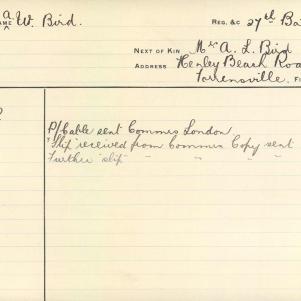 A.
NAME W. Bird.
REG. &C 27th Ba
NEXT OF KIN Mrs A. L. Bird
ADDRESS Henley Beach Roa
Torrensville,
P/Cable sent Commrs London
"Slip" received from Commrs Copy sent
Further "slip" " " "